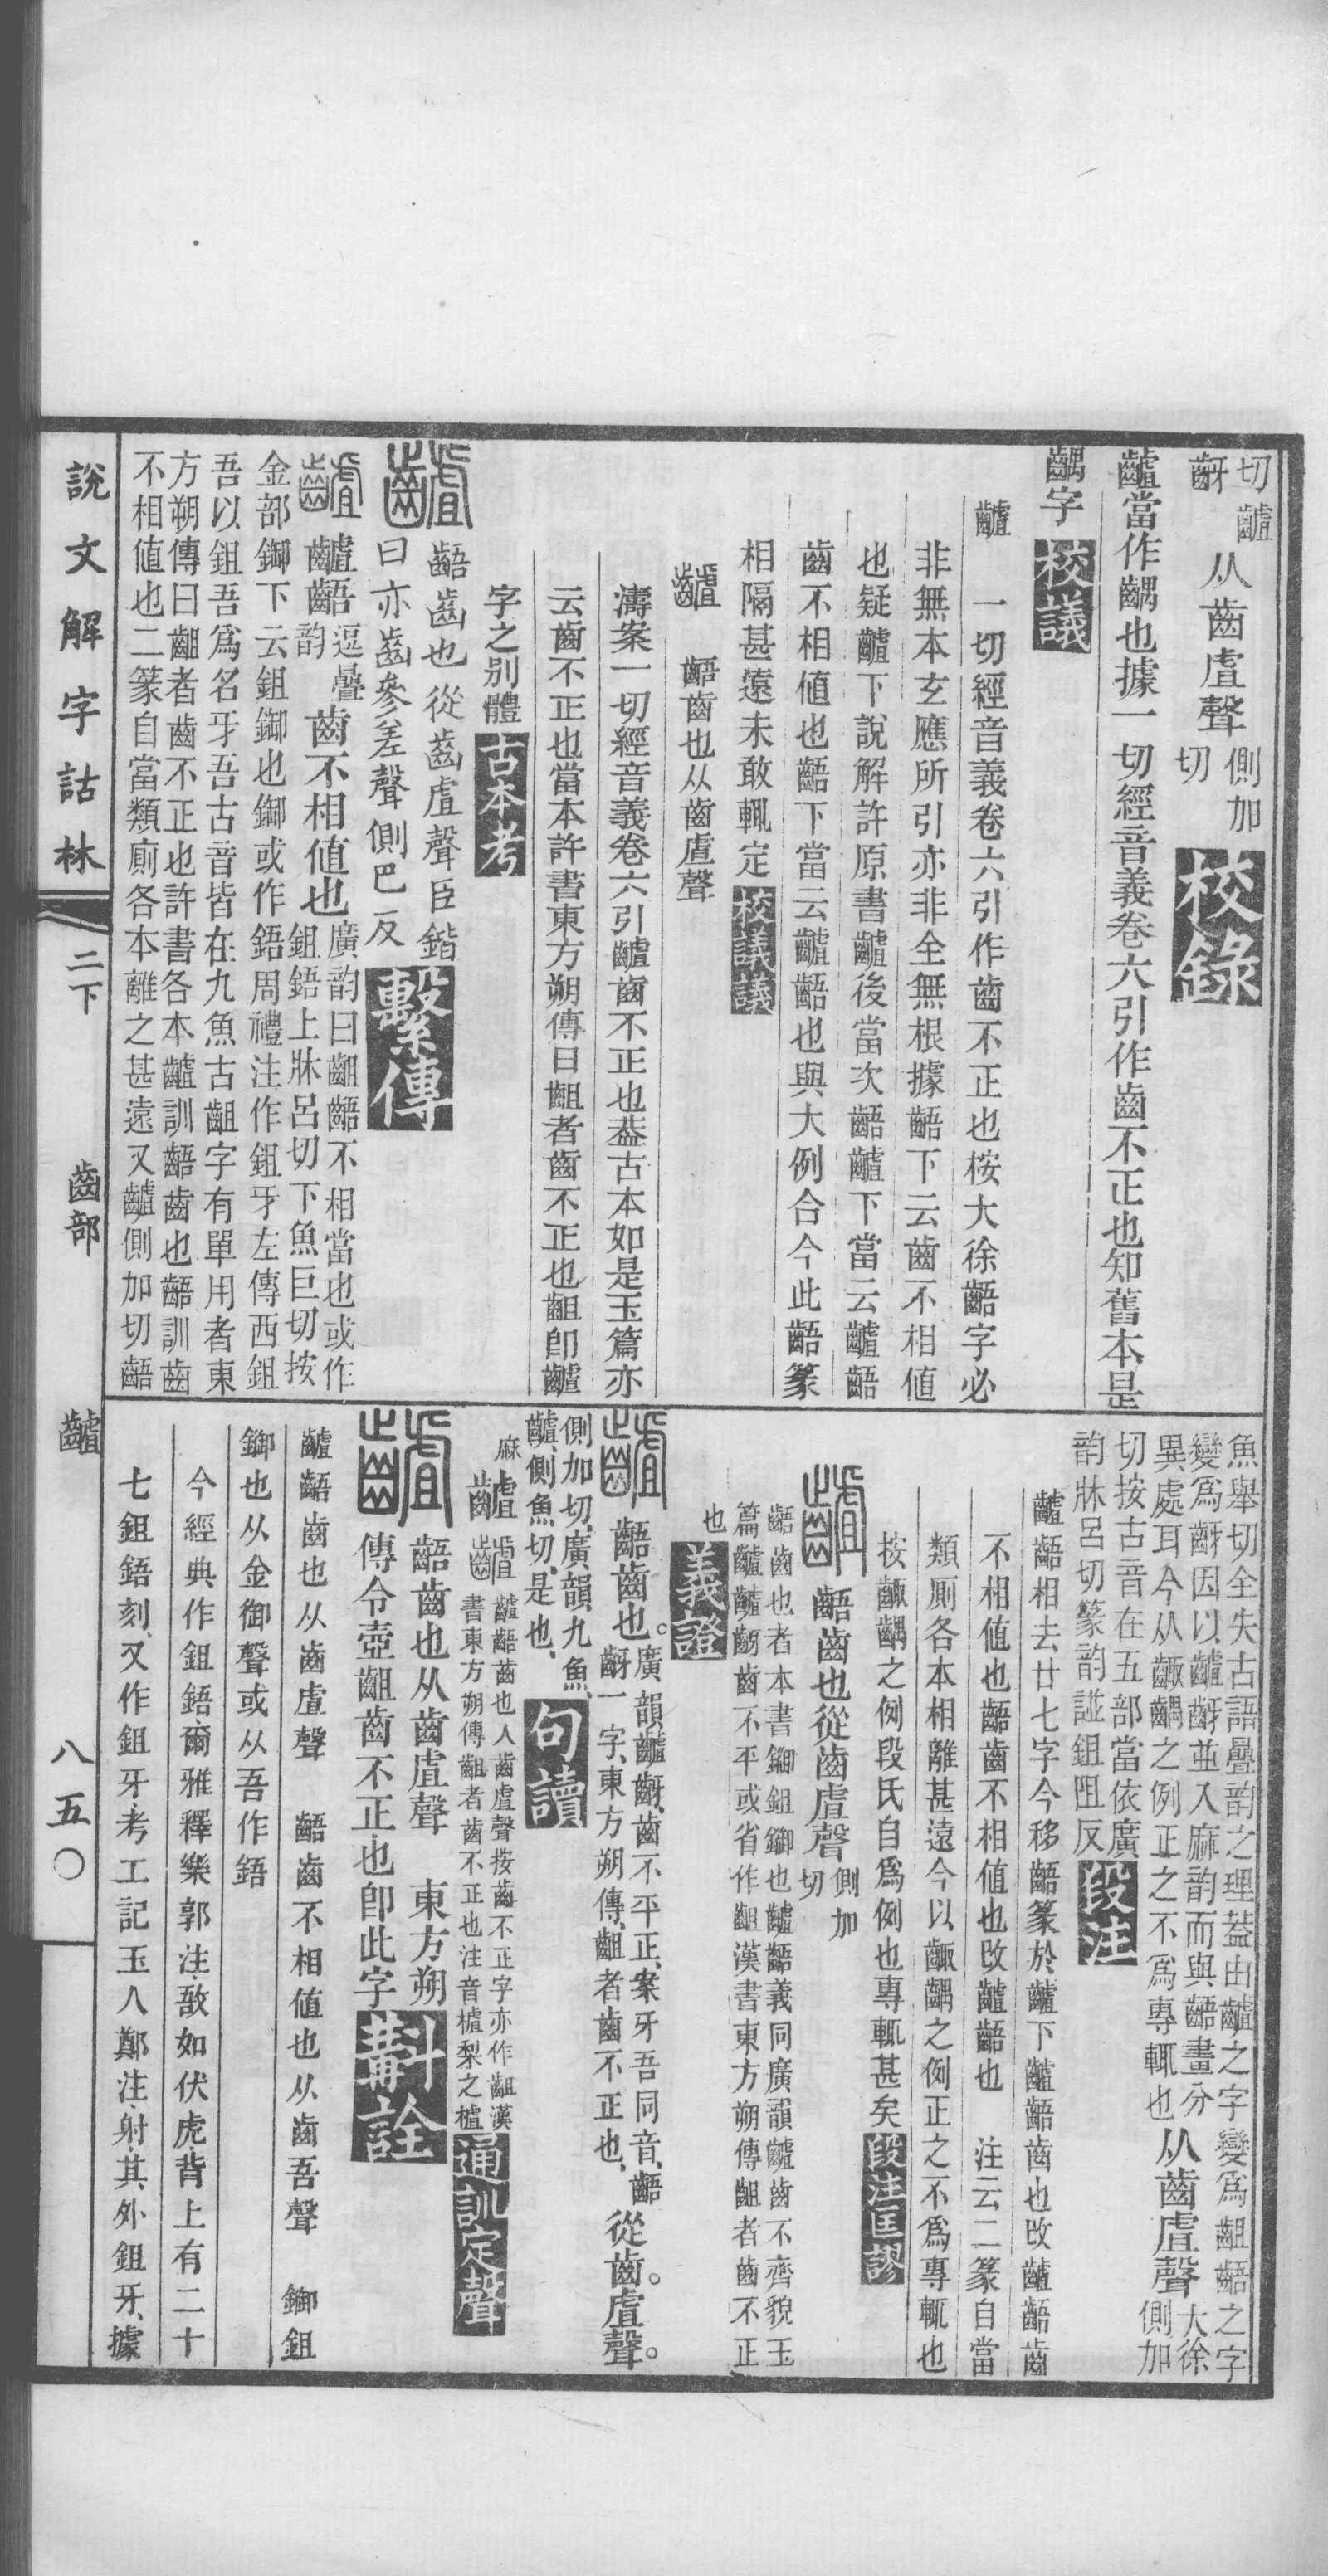 切䶥
齖
从齒虘聲
側加
切
校錄
䶥當作齵也據一切經音義卷六引作齒不正也知舊本是
齵字 校議
䶥 一切經音義卷六引作齒不正也桉大徐齬字必
非無本玄應所引亦非全無根據齬下云齒不相値
也疑䶥下說解許原書䶥後當次齬䶥下當云䶥齬
齒不相値也齬下當云䶥齬也與大例合今此齬篆
相隔甚遠未敢輒定 校議議
䶥 齬齒也从齒虘聲
濤案一切經音義卷六引䶥齒不正也葢古本如是玉篇亦
云齒不正也當本許書東方朔傳曰齟者齒不正也齟卽䶥
字之別體 古本考
䶥 齬齒也從齒虘聲臣鍇
曰亦齒參差聲側巴反 繫傳
䶥 䶥齬
逗疊
韵
齒不相値也
廣韵曰齟齬不相當也或作
鉏鋙上牀呂切下魚巨切按
金部鋤下云鉏鋤也鋤或作鋙周禮注作鉏牙左傳西鉏
吾以鉏吾爲名牙吾古音皆在九魚古齟字有單用者東
方朔傳曰齟者齒不正也許書各本䶥訓齬齒也齬訓齒
不相値也二篆自當類廁各本離之甚遠又䶥側加切齬
魚舉切全失古語疊韵之理葢由䶥之字變爲齟齬之字
變爲齖因以䶥齖並入麻韵而與齬畫分
異處耳今从齱齵之例正之不爲專輒也
从齒虘聲
大徐
側加
切按古音在五部當依廣
韵牀呂切篆韵譜鉏阻反
段注
䶥齬相去廿七字今移齬篆於䶥下䶥齬齒也改䶥齬齒
不相値也齬齒不相値也改䶥齬也 注云二篆自當
類廁各本相離甚遠今以齱齵之例正之不爲專輒也
按齱齵之例段氏自爲例也專輒甚矣 段注匡謬
䶥 齬齒也從齒虘聲
側加
切
齬齒也者本書鋤鉏鋤也䶥齬義同廣韻䶥齒不齊貌玉
篇䶥䶥齖齒不平或省作齟漢書東方朔傳齟者齒不正
也 義證
䶥 齬齒也。
廣韻䶥齖齒不平正案牙吾同音齬
齖一字東方朔傳齟者齒不正也
從齒。虘聲。
側加切、廣韻九魚、
䶥、側魚切、是也、
句讀
麻䶥 䶥
䶥齬齒也人齒虘聲按齒不正字亦作齟漢
書東方朔傳齟者齒不正也注音樝梨之樝
通訓定聲
䶥 齬齒也从齒虘聲 東方朔
傳令壺齟齒不正也卽此字 斠詮
䶥齬齒也从齒虘聲 齬齒不相値也从齒吾聲 鋤鉏
鋤也从金御聲或从吾作鋙
今經典作鉏鋙爾雅釋樂郭注、敔如伏虎背上有二十
七鉏鋙刻、又作鉏牙考工記玉人鄭注、射其外鉏牙、據
說文解字詁林 二下 齒部 䶥 八五〇